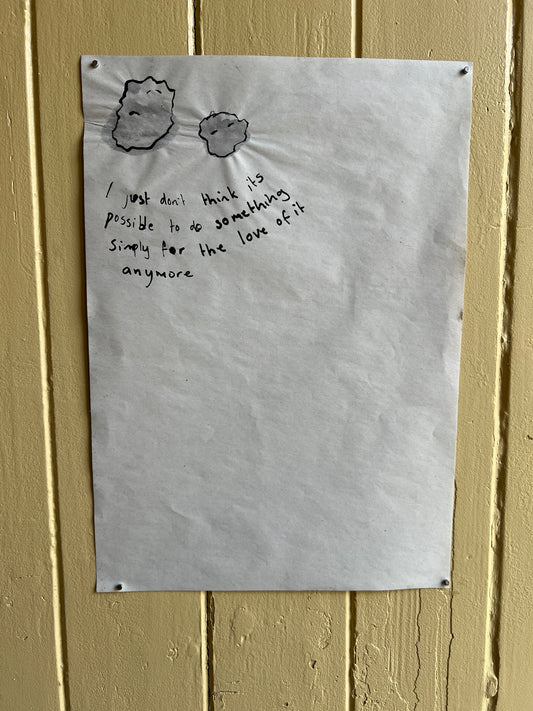 I just don't think its
possible to do something
simply for the love of it
anymore